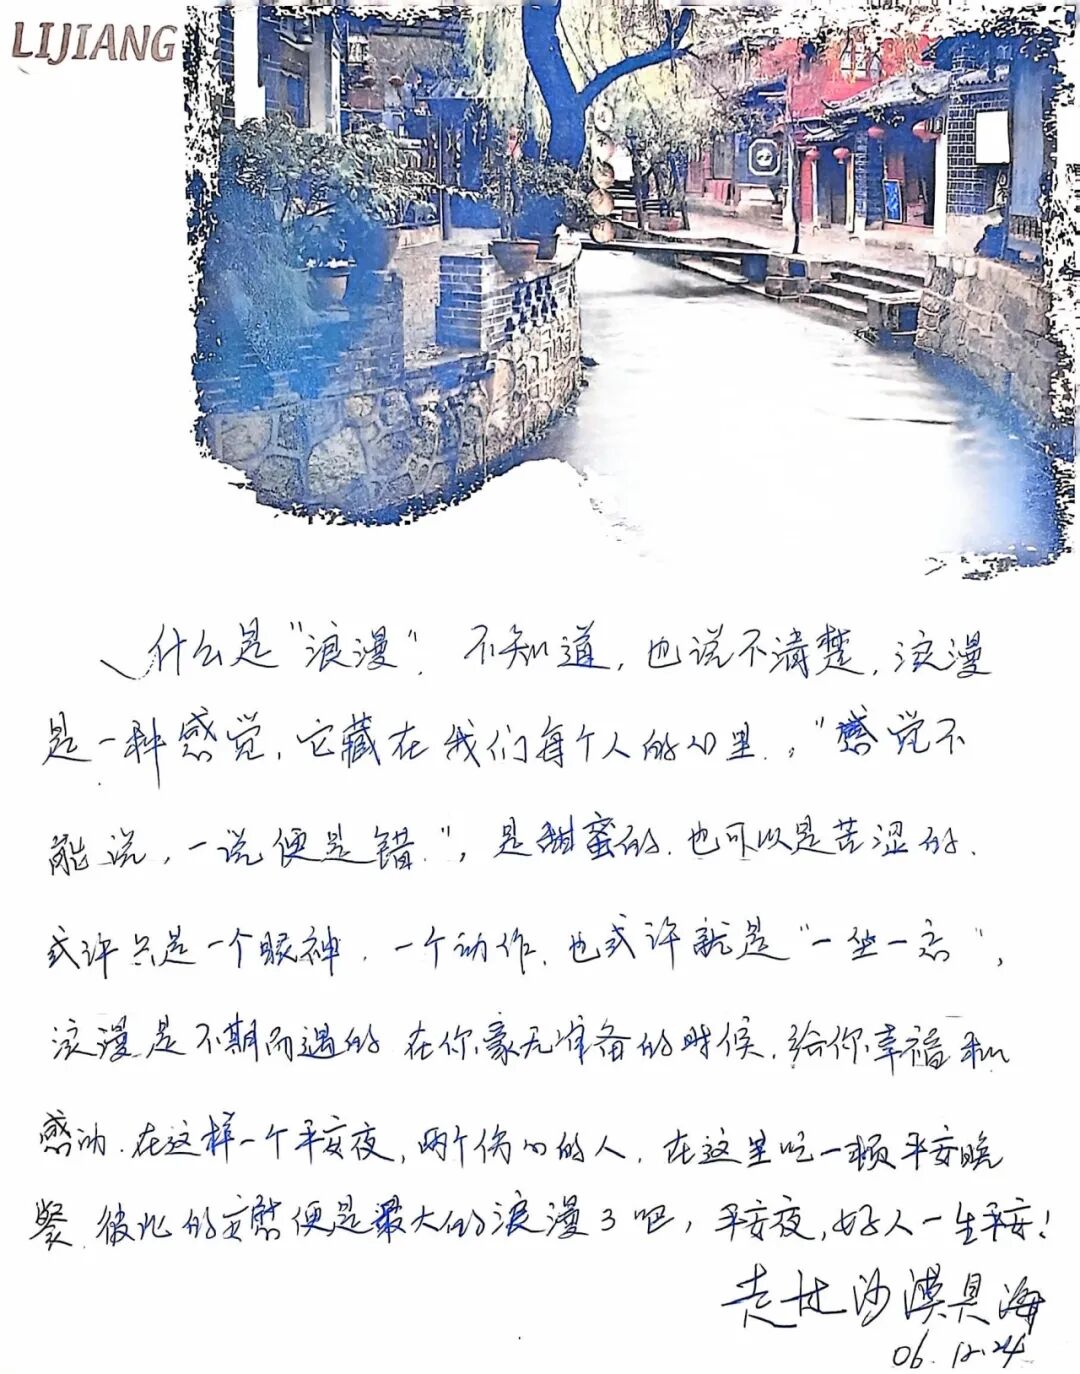 LIJIANG
什么是"浪漫"。不知道，也说不清楚，浪漫
是一种感觉，它藏在我们每个人的心里。，"感觉不
能说，一说便是错。"，是甜蜜的.也可以是苦涩的.
或许只是一个眼神.一个动作.也或许就是"一坐一忘"，
浪漫是不期而遇的 在你豪无准备的时候.给你幸福和
感动.在这样一个平安夜，两个伤心的人.在这里吃一顿平安晚
餐.彼此的安慰便是最大的浪漫了吧，平安夜，好人一生平安！
走过沙漠见海
06.12.24